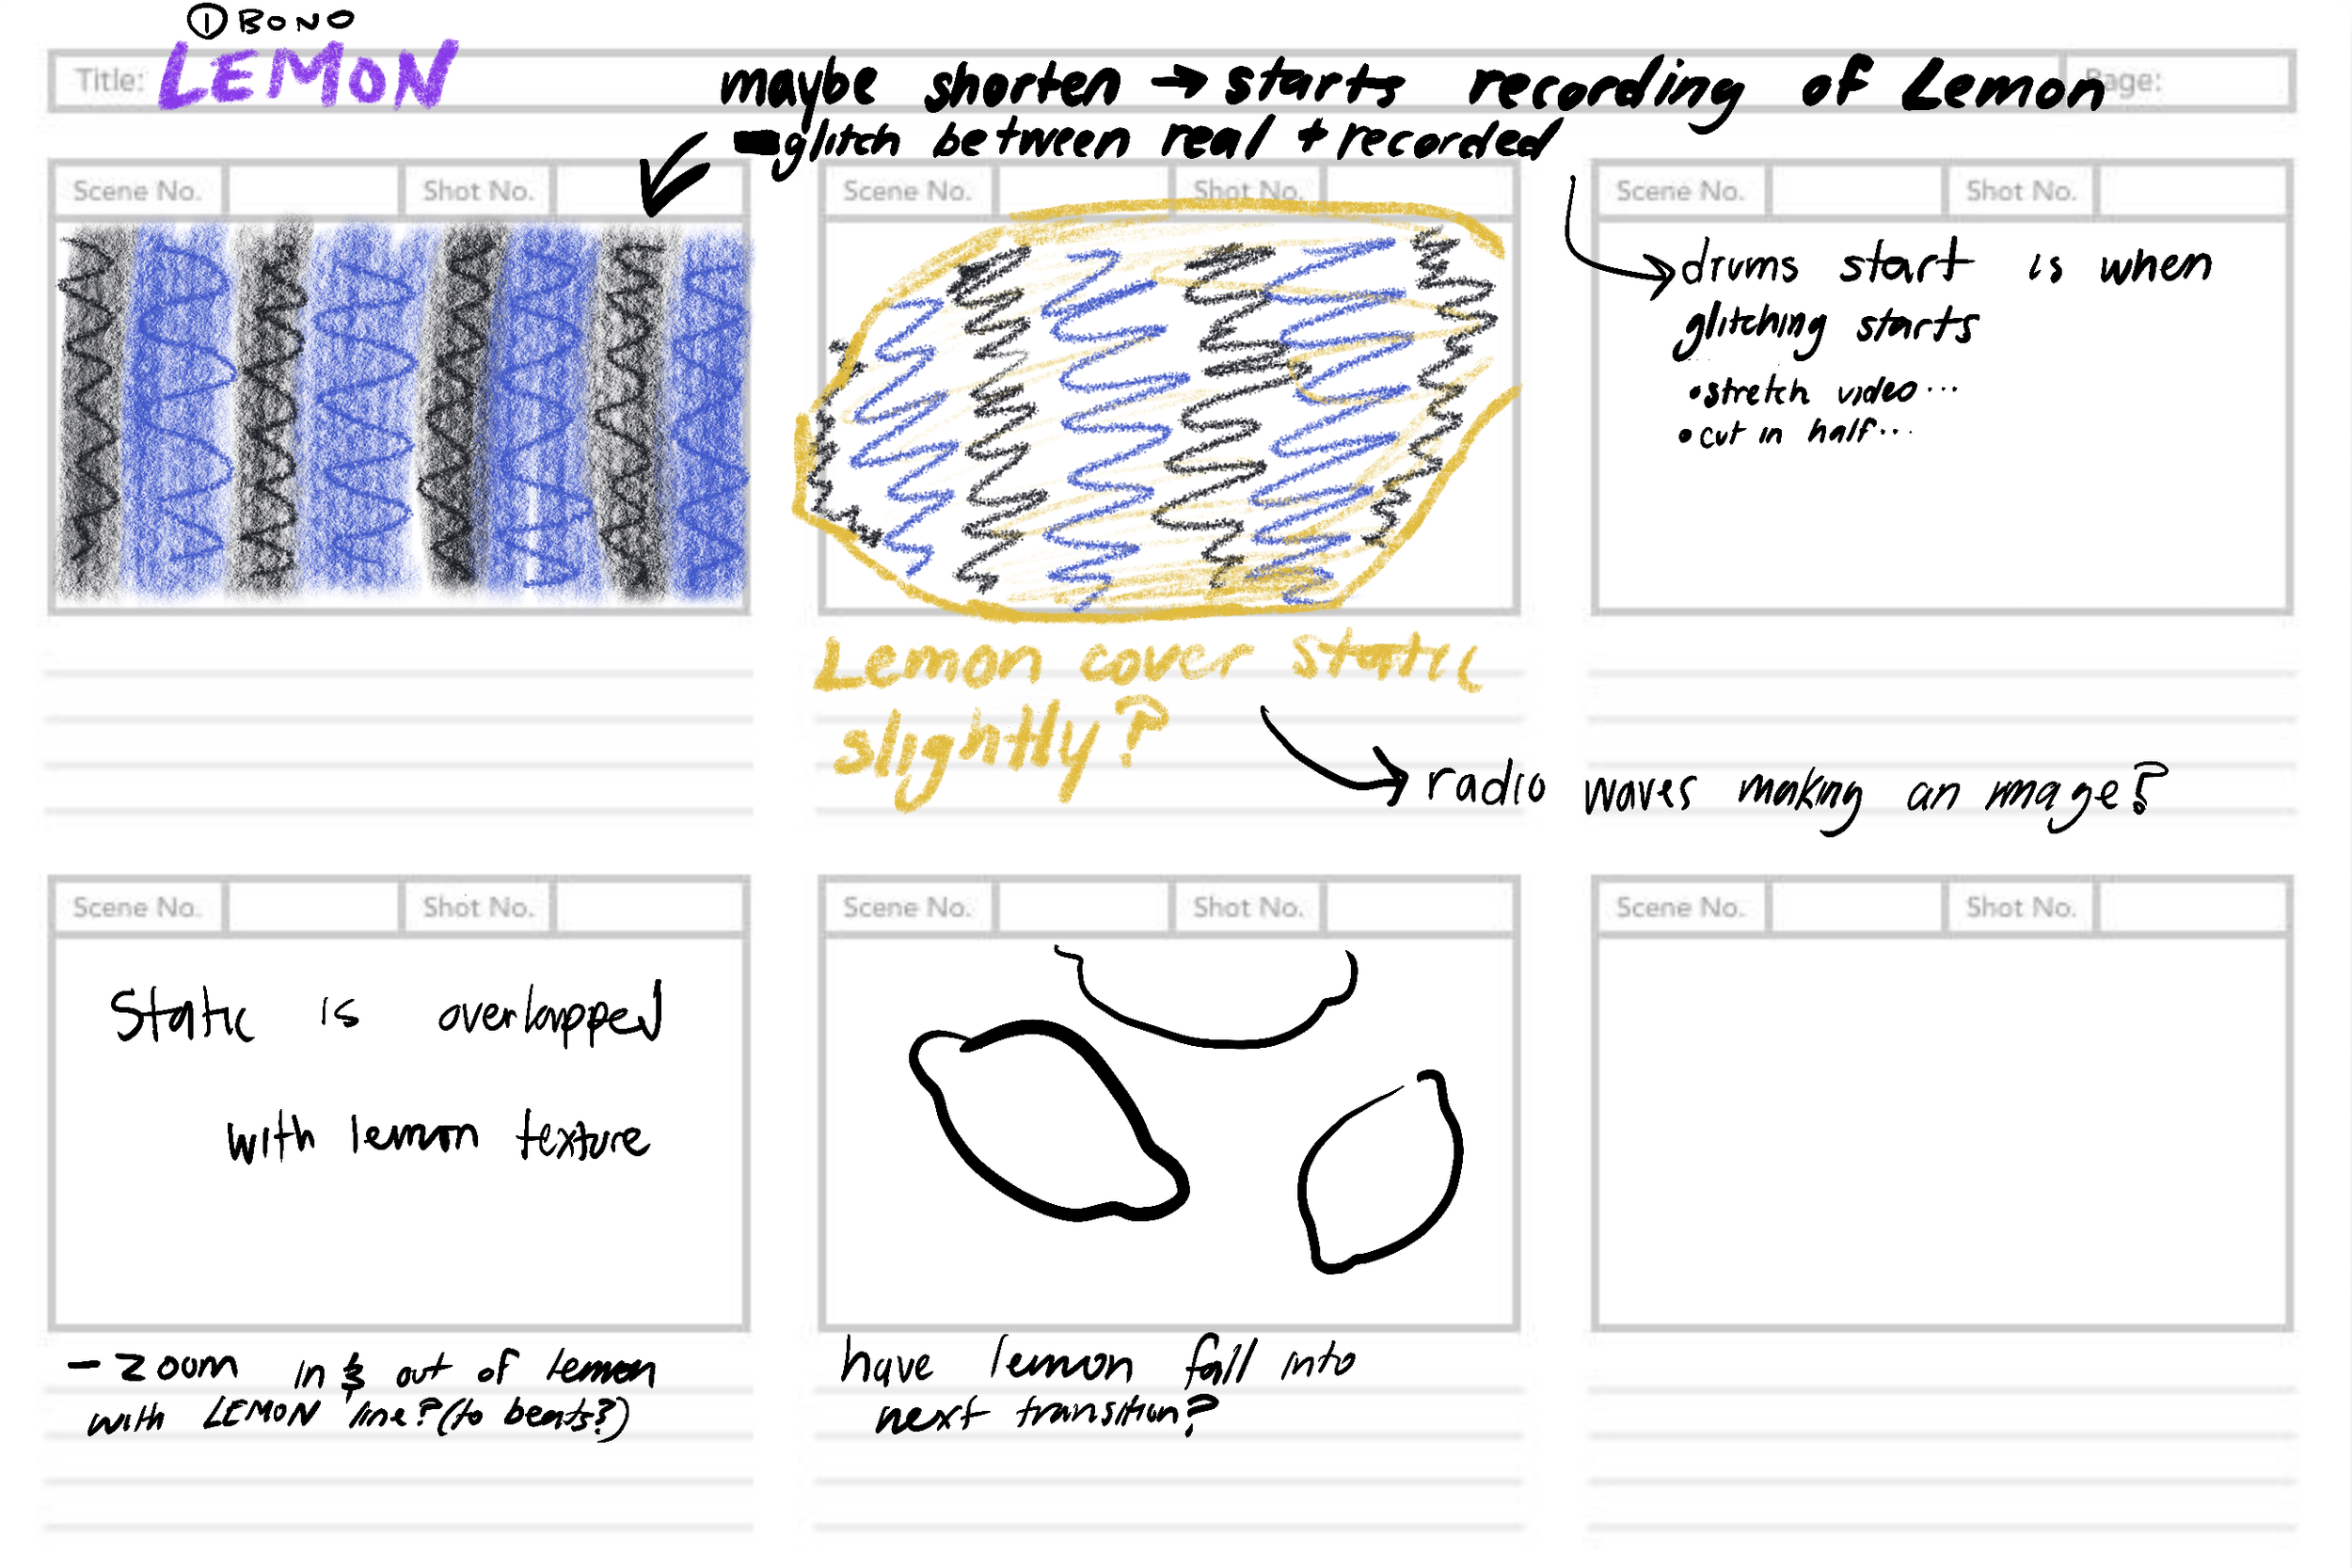 ① BONO
Title: LEMON
Page:
maybe shorten → starts recording of Lemon
- glitch between real + recorded
Scene No. Shot No.
Scene No. Shot No.
Scene No. Shot No.
drums start is when
glitching starts
• stretch video...
• cut in half...
Lemon cover static
slightly?
radio waves making an image?
Scene No. Shot No.
Scene No. Shot No.
Scene No. Shot No.
Static is overlapped
with lemon texture
- zoom in & out of lemon
with LEMON line? (to beats?)
have lemon fall into
next transition?